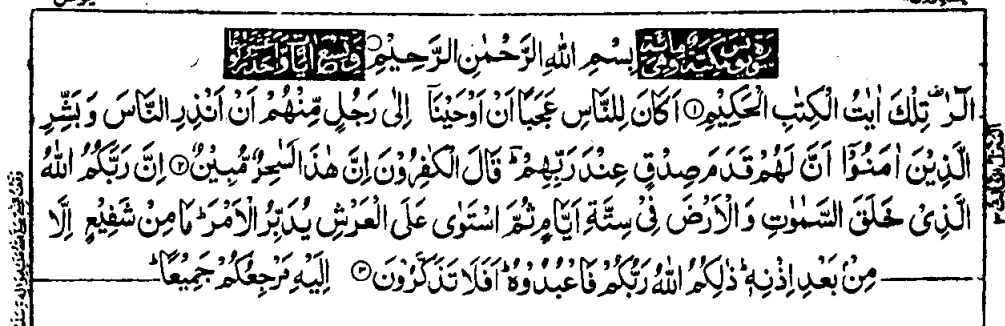 سورة يونس مكية وهي مائة بِسْمِ اللهِ الرَّحْمٰنِ الرَّحِيْمِ وتسع آيات
الٓرٰ ۫ تِلْكَ اٰيٰتُ الْكِتٰبِ الْحَكِيْمِ ۝۱ اَكَانَ لِلنَّاسِ عَجَبًا اَنْ اَوْحَيْنَاۤ اِلٰى رَجُلٍ مِّنْهُمْ اَنْ اَنْذِرِ النَّاسَ وَ بَشِّرِ
الَّذِيْنَ اٰمَنُوْۤا اَنَّ لَهُمْ قَدَمَ صِدْقٍ عِنْدَ رَبِّهِمْ ؕ قَالَ الْكٰفِرُوْنَ اِنَّ هٰذَا لَسٰحِرٌ مُّبِيْنٌ ۝۲ اِنَّ رَبَّكُمُ اللهُ
الَّذِىْ خَلَقَ السَّمٰوٰتِ وَ الْاَرْضَ فِىْ سِتَّةِ اَيَّامٍ ثُمَّ اسْتَوٰى عَلَى الْعَرْشِ يُدَبِّرُ الْاَمْرَ ؕ مَا مِنْ شَفِيْعٍ اِلَّا
مِنْۢ بَعْدِ اِذْنِهٖ ؕ ذٰلِكُمُ اللهُ رَبُّكُمْ فَاعْبُدُوْهُ ؕ اَفَلَا تَذَكَّرُوْنَ ۝۳ اِلَيْهِ مَرْجِعُكُمْ جَمِيْعًا ؕ